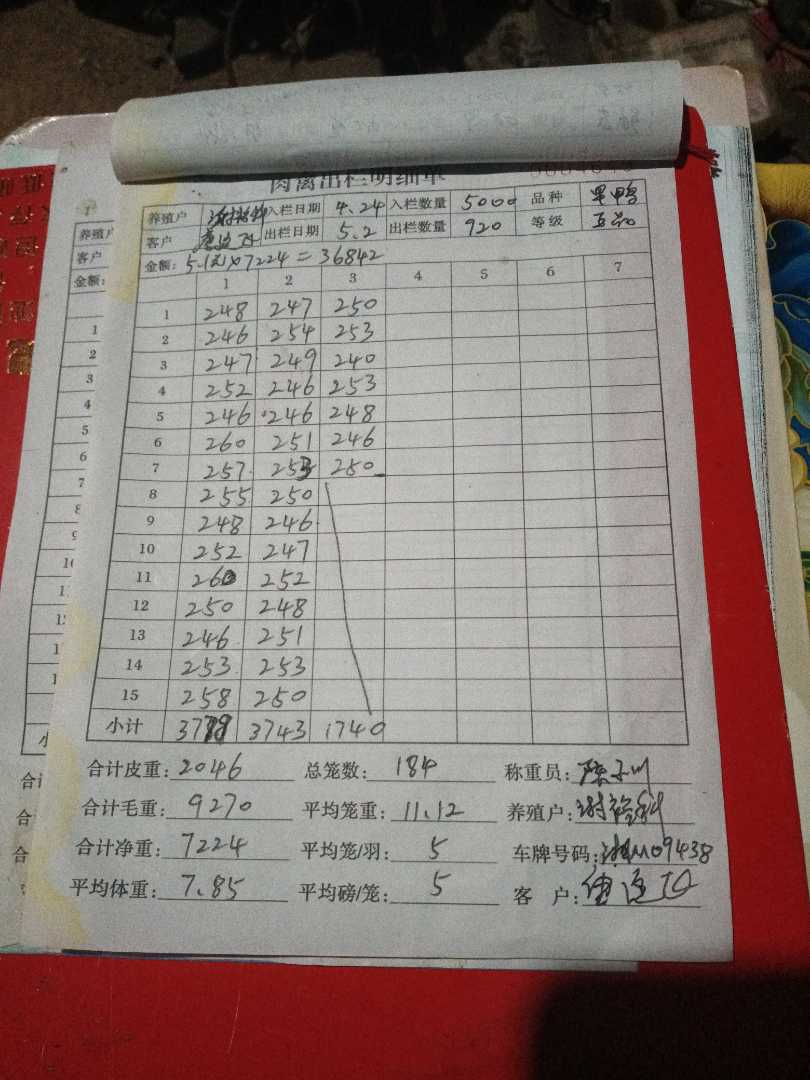 肉禽出栏明细单
养殖户 谢裕科 入栏日期 4.24 入栏数量 5000 品种 黑鸭
客户 出栏日期 5.2 出栏数量 920 等级
金额: 5.1元×7224=36842
1 2 3 4 5 6 7
1 248 247 250
2 246 254 253
3 247 249 240
4 252 246 253
5 246 246 248
6 260 251 246
7 257 253 250
8 255 250
9 248 246
10 252 247
11 260 252
12 250 248
13 246 251
14 253 253
15 258 250
小计 3743 1740
合计皮重: 2046 总笼数: 184 称重员: 陈子川
合计毛重: 9270 平均笼重: 11.12 养殖户: 谢裕科
合计净重: 7224 平均笼/羽: 5 车牌号码: 湘M09438
平均体重: 7.85 平均磅/笼: 5 客 户: